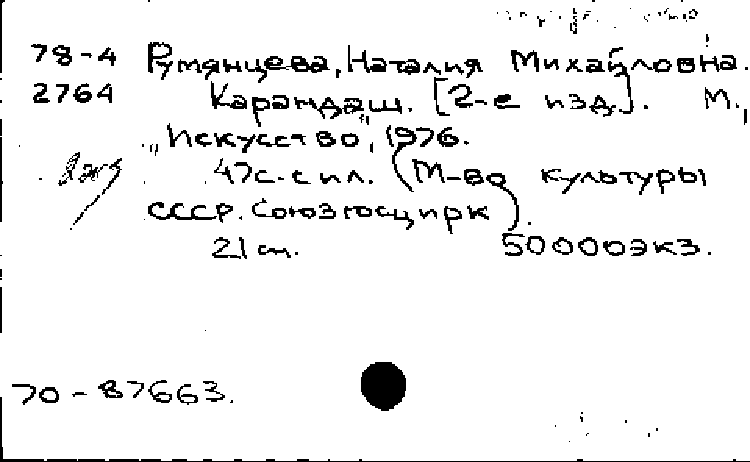 78-4 Румянцева, Наталия Михайловна.
2764 Карандаш. [2-е изд.]. М.,
„Искусство", 1976.
2 экз 47с. с ил. (М-во культуры
СССР. Союзгосцирк).
21 см. 50000экз.
70-87663.